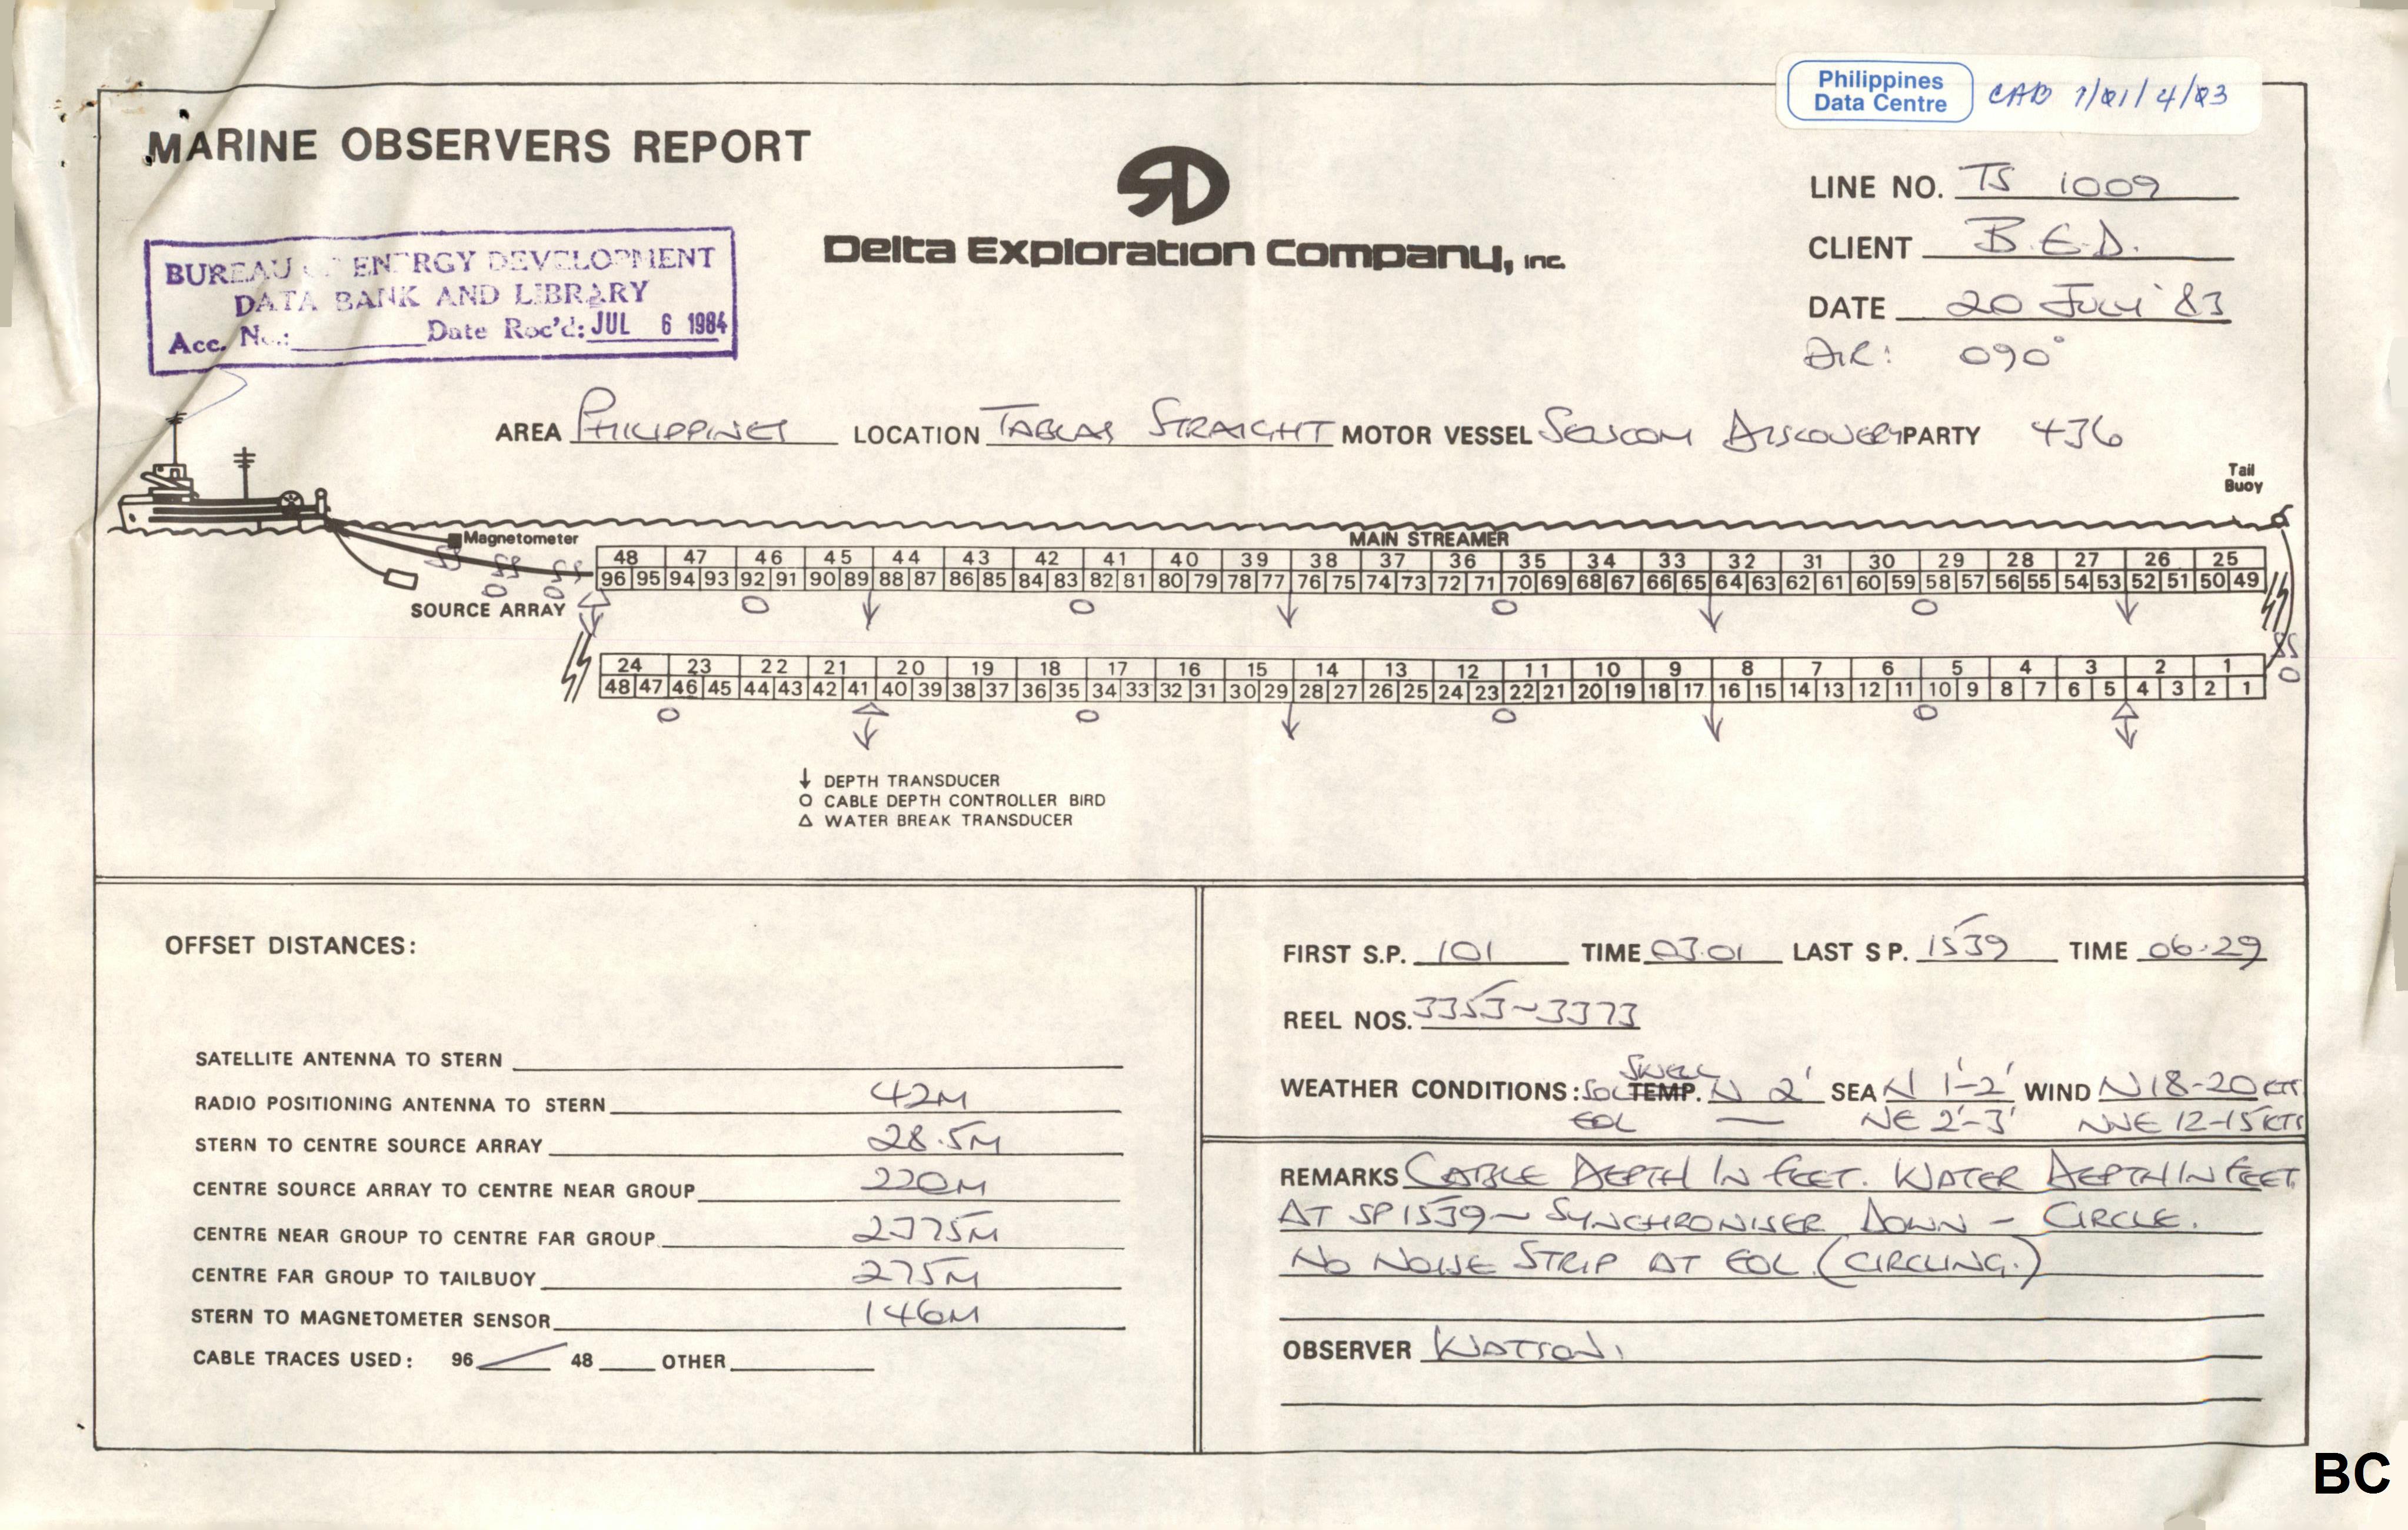 Philippines
Data Centre
MARINE OBSERVERS REPORT
Delta Exploration Company, Inc.
LINE NO. TS 1009
CLIENT B.E.D.
DATE 20 JULY '83
DIR: 090°
BUREAU OF ENERGY DEVELOPMENT
DATA BANK AND LIBRARY
Acc. No.: Date Rec'd: JUL 6 1984
AREA PHILIPPINES LOCATION TABLAS STRAIGHT MOTOR VESSEL SEISCOM DISCOVERY PARTY 436
Tail
Buoy
Magnetometer
MAIN STREAMER
48 47 46 45 44 43 42 41 40 39 38 37 36 35 34 33 32 31 30 29 28 27 26 25
96 95 94 93 92 91 90 89 88 87 86 85 84 83 82 81 80 79 78 77 76 75 74 73 72 71 70 69 68 67 66 65 64 63 62 61 60 59 58 57 56 55 54 53 52 51 50 49
SS SS SS
SOURCE ARRAY
SS
24 23 22 21 20 19 18 17 16 15 14 13 12 11 10 9 8 7 6 5 4 3 2 1
48 47 46 45 44 43 42 41 40 39 38 37 36 35 34 33 32 31 30 29 28 27 26 25 24 23 22 21 20 19 18 17 16 15 14 13 12 11 10 9 8 7 6 5 4 3 2 1
↓ DEPTH TRANSDUCER
O CABLE DEPTH CONTROLLER BIRD
△ WATER BREAK TRANSDUCER
OFFSET DISTANCES:
SATELLITE ANTENNA TO STERN
RADIO POSITIONING ANTENNA TO STERN 42M
STERN TO CENTRE SOURCE ARRAY 28.5M
CENTRE SOURCE ARRAY TO CENTRE NEAR GROUP 220M
CENTRE NEAR GROUP TO CENTRE FAR GROUP 2375M
CENTRE FAR GROUP TO TAILBUOY 275M
STERN TO MAGNETOMETER SENSOR 146M
CABLE TRACES USED: 96 48 OTHER
FIRST S.P. 101 TIME 03.01 LAST S P. 1539 TIME 06.29
REEL NOS. 3353~3373
SWELL
WEATHER CONDITIONS: SOL TEMP. N 2' SEA N 1'-2' WIND N 18-20 KTS
EOL — NE 2'-3' NNE 12-15 KTS
REMARKS CABLE DEPTH IN FEET. WATER DEPTH IN FEET
AT SP 1539 ~ SYNCHRONISER DOWN - CIRCLE.
NO NOISE STRIP AT EOL (CIRCLING.)
OBSERVER WATSON.
BC